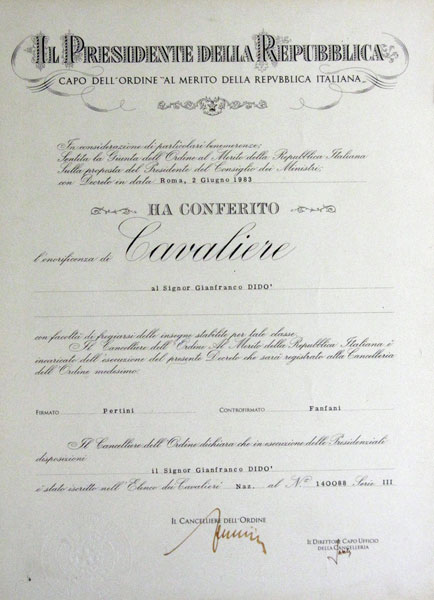 IL PRESIDENTE DELLA REPUBBLICA
CAPO DELL'ORDINE "AL MERITO DELLA REPVBBLICA ITALIANA„
In considerazione di particolari benemerenze;
Sentita la Giunta dell'Ordine al Merito della Repubblica Italiana
Sulla proposta del Presidente del Consiglio dei Ministri;
con Decreto in data Roma, 2 Giugno 1983
HA CONFERITO
l'onorificenza di Cavaliere
al Signor Gianfranco DIDO'
con facoltà di fregiarsi delle insegne stabilite per tale classe.
Il Cancelliere dell'Ordine Al Merito della Repubblica Italiana è
incaricato dell'esecuzione del presente Decreto che sarà registrato alla Cancelleria
dell'Ordine medesimo.
FIRMATO Pertini CONTROFIRMATO Fanfani
Il Cancelliere dell'Ordine dichiara che in esecuzione delle Presidenziali
disposizioni
il Signor Gianfranco DIDO'
è stato iscritto nell'Elenco dei Cavalieri Naz. al N.° 140088 Serie III
IL CANCELLIERE DELL'ORDINE
IL DIRETTORE CAPO UFFICIO
DELLA CANCELLERIA